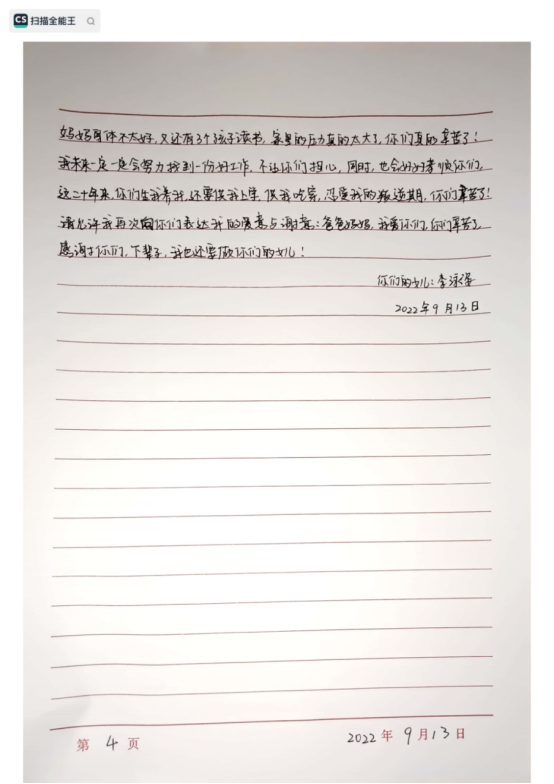 CS 扫描全能王
妈妈身体不太好,又还有3个孩子读书,家里的压力真的太大了,你们真的辛苦了!
我未来一定一定会努力找到一份好工作,不让你们担心,同时,也会好好孝顺你们,
这二十年来,你们生我养我,还要供我上学,供我吃穿,忍受我的叛逆期,你们辛苦了!
请允许我再次向你们表达我的爱意与谢意:爸爸妈妈,我爱你们,你们辛苦了,
感谢你们,下辈子,我也还要做你们的女儿!
你们的女儿:李泳
2022年9月13日
第 4 页 2022年9月13日